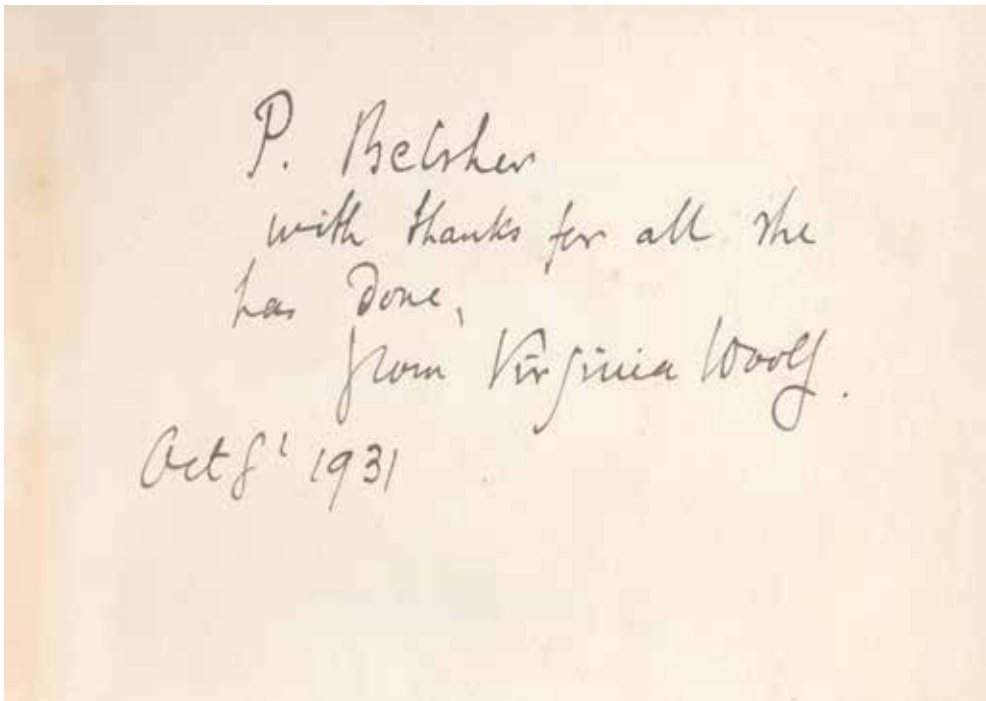 P. Belsher
with thanks for all she
has done,
from Virginia Woolf.
Oct 8th 1931